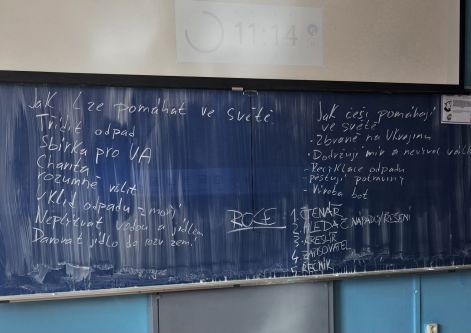 11:14
Jak lze pomáhat ve světě
Třídit odpad
Sbírka pro UA
Charita
rozumně volit
Úklid odpadu z moří
Neplýtvat vodou a jídlem
Darovat jídlo do rozv. zemí
ROLE
Jak češi pomáhají
ve světě
- Zbraně na Ukrajinu
- Dodržují mír a
- Recyklace odpadu
pěstují potraviny
- Výroba bot
1. ČTENÁŘ
2. HLEDAČ NÁPADŮ/ŘEŠENÍ
3. KRESLÍŘ
4. ZAPISOVATEL
5. ŘEČNÍK